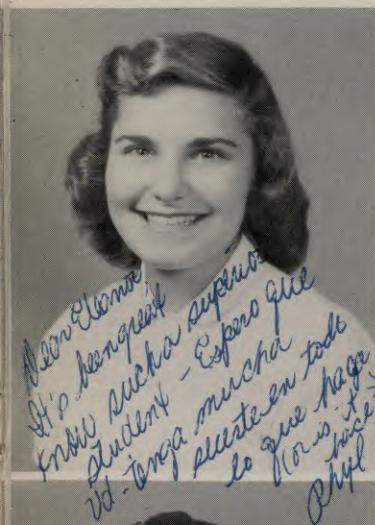 Dear Eleanor
It's been great
know such a superior
student - Espero que
Vd - tenga mucha
suerte en todo
lo que haga
(or is it
hace?)
Phyl